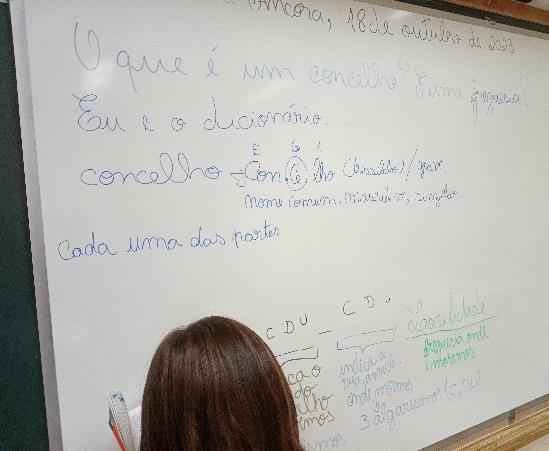 Âncora, 18 de outubro de 2023
O que é um concelho? E uma freguesia?
Eu e o dicionário...
E G
concelho → Con.ce.lho (trissílabo) / grave
nome comum, masculino, singular
Cada uma das partes
C D U – C D U Localidade
freguesia onde moramos
indica a
onde moramos
3 algarismos (C, D, U)